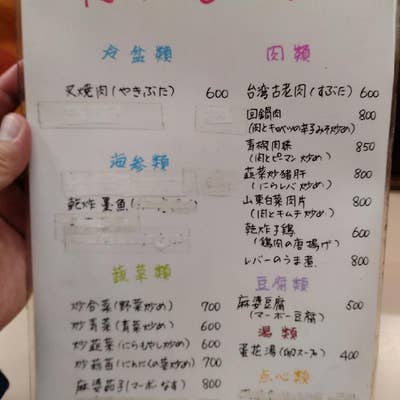 冷盆類
叉焼肉(やきぶた) 600
海参類
乾炸墨魚(
蔬菜類
炒合菜(野菜炒め) 700
炒青菜(青菜炒め) 600
炒蔬菜(にらもやし炒め) 600
炒蒜苗(にんにくの茎炒め) 700
麻婆茄子(マーボなす) 800
肉類
台湾古老肉(すぶた) 600
回鍋肉 800
(肉とキャベツの辛子みそ炒め)
青椒肉絲 850
(肉とピーマン炒め)
韮菜炒猪肝 800
(にらレバ炒め)
山東白菜肉片 800
(肉とキムチ炒め)
乾炸子鶏 600
(鶏肉の唐揚げ)
レバーのうま煮 800
豆腐類
麻婆豆腐 500
(マーボー豆腐)
湯類
蛋花湯(卵スープ) 400
点心類